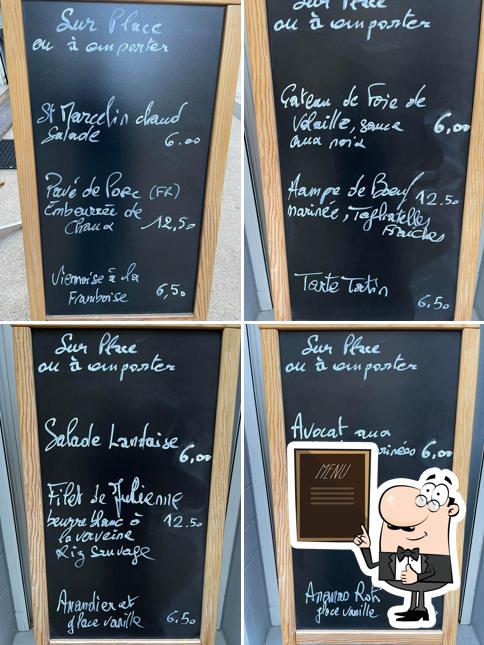 Sur Place
ou à emporter
St Marcelin chaud
Salade 6.00
Pavé de Porc (FR)
Embeurrée de
Choux 12,50
Viennoise à la
Framboise 6,50
Sur Place
ou à emporter
Gateau de Foie de
Volaille, sauce 6,00
aux noix
Hampe de Boeuf 12.50
marinée, Tagliatelles
Fraîches
Tarte Tatin
6.50
Sur Place
ou à emporter
Salade Landaise
6,00
Filet de Julienne
beurre blanc à 12.50
la verveine
Riz Sauvage
Amandier et
glace vanille 6.50
Sur Place
ou à emporter
Avocat aux
6,00
MENU
Ananas Roti
glace vanille